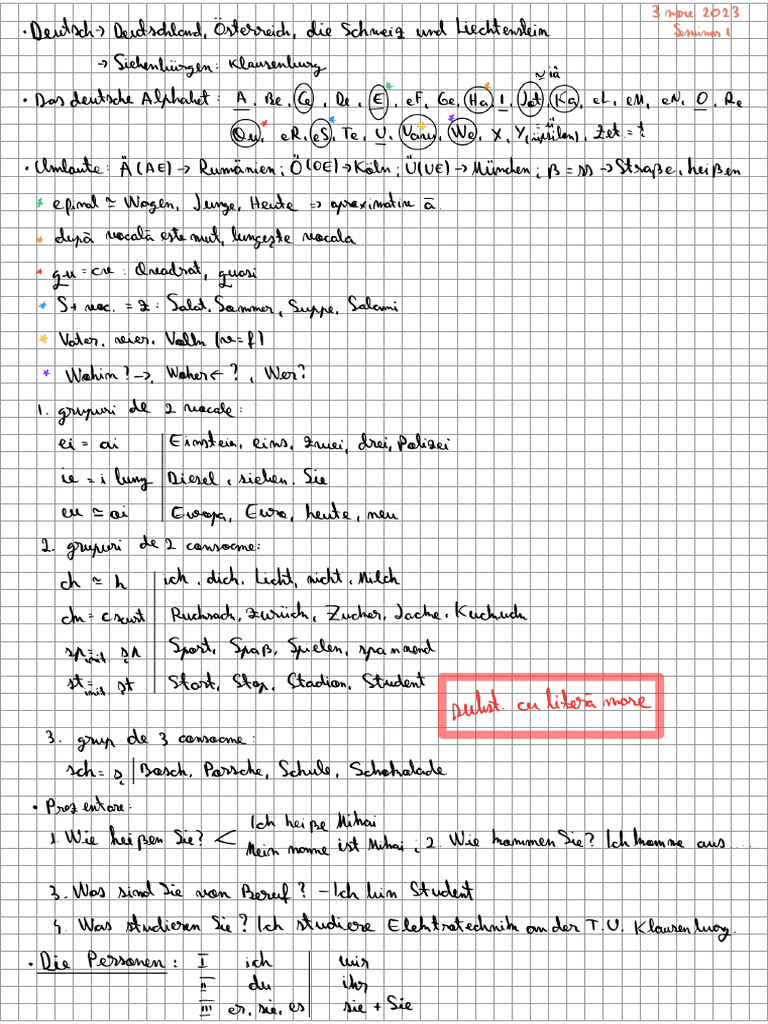 3 nov. 2023
Seminar 1
• Deutsch → Deutschland, Österreich, die Schweiz und Liechtenstein
→ Siebenbürgen: Klausenburg
~ iă
• Das deutsche Alphabet: A, Be, Ce, De, E, eF, Ge, Ha, I, Jot, Ka, eL, eM, eN, O, Pe
Qu, eR, eS, Te, U, Vau, We, X, Y (üpsilon), Zet = ț
• Umlaute: Ä (AE) → Rumänien; Ö (OE) → Köln; Ü (UE) → München; β = ss → Straße, heißen
* e final ≃ Wagen, Junge, Heute => aproximativ ă
* după vocală este mut, lungește vocala
* qu = cv: Quadrat, quasi
* S + voc. = z: Salat, Sommer, Suppe, Salami
* Vater, vier, Volk (v=f)
* Wohin? →, Woher ← ?, Wer?
1. grupuri de 2 vocale:
ei = ai | Einstein, eins, zwei, drei, Polizei
ie = i lung | Diesel, sieben, Sie
eu ≃ oi | Europa, Euro, heute, neu
2. grupuri de 2 consoane:
ch ≃ h | ich, dich, Licht, nicht, Milch
ck = c scurt | Rucksack, zurück, Zucker, Jacke, Kuckuck
sp init = șp | Sport, Spaß, Spielen, spannend
st init = șt | Start, Stop, Stadion, Student
subst. cu literă mare
3. grup de 3 consoane:
sch = ș | Bosch, Porsche, Schule, Schokolade
• Prezentare:
1. Wie heißen Sie? < Ich heiße Mihai
Mein name ist Mihai; 2. Wie kommen Sie? Ich komme aus ....
3. Was sind Sie von Beruf? – Ich bin Student
4. Was studieren Sie? Ich studiere Elektrotechnik an der T.U. Klausenburg.
• Die Personen: I ich | wir
II du | ihr
III er, sie, es | sie + Sie